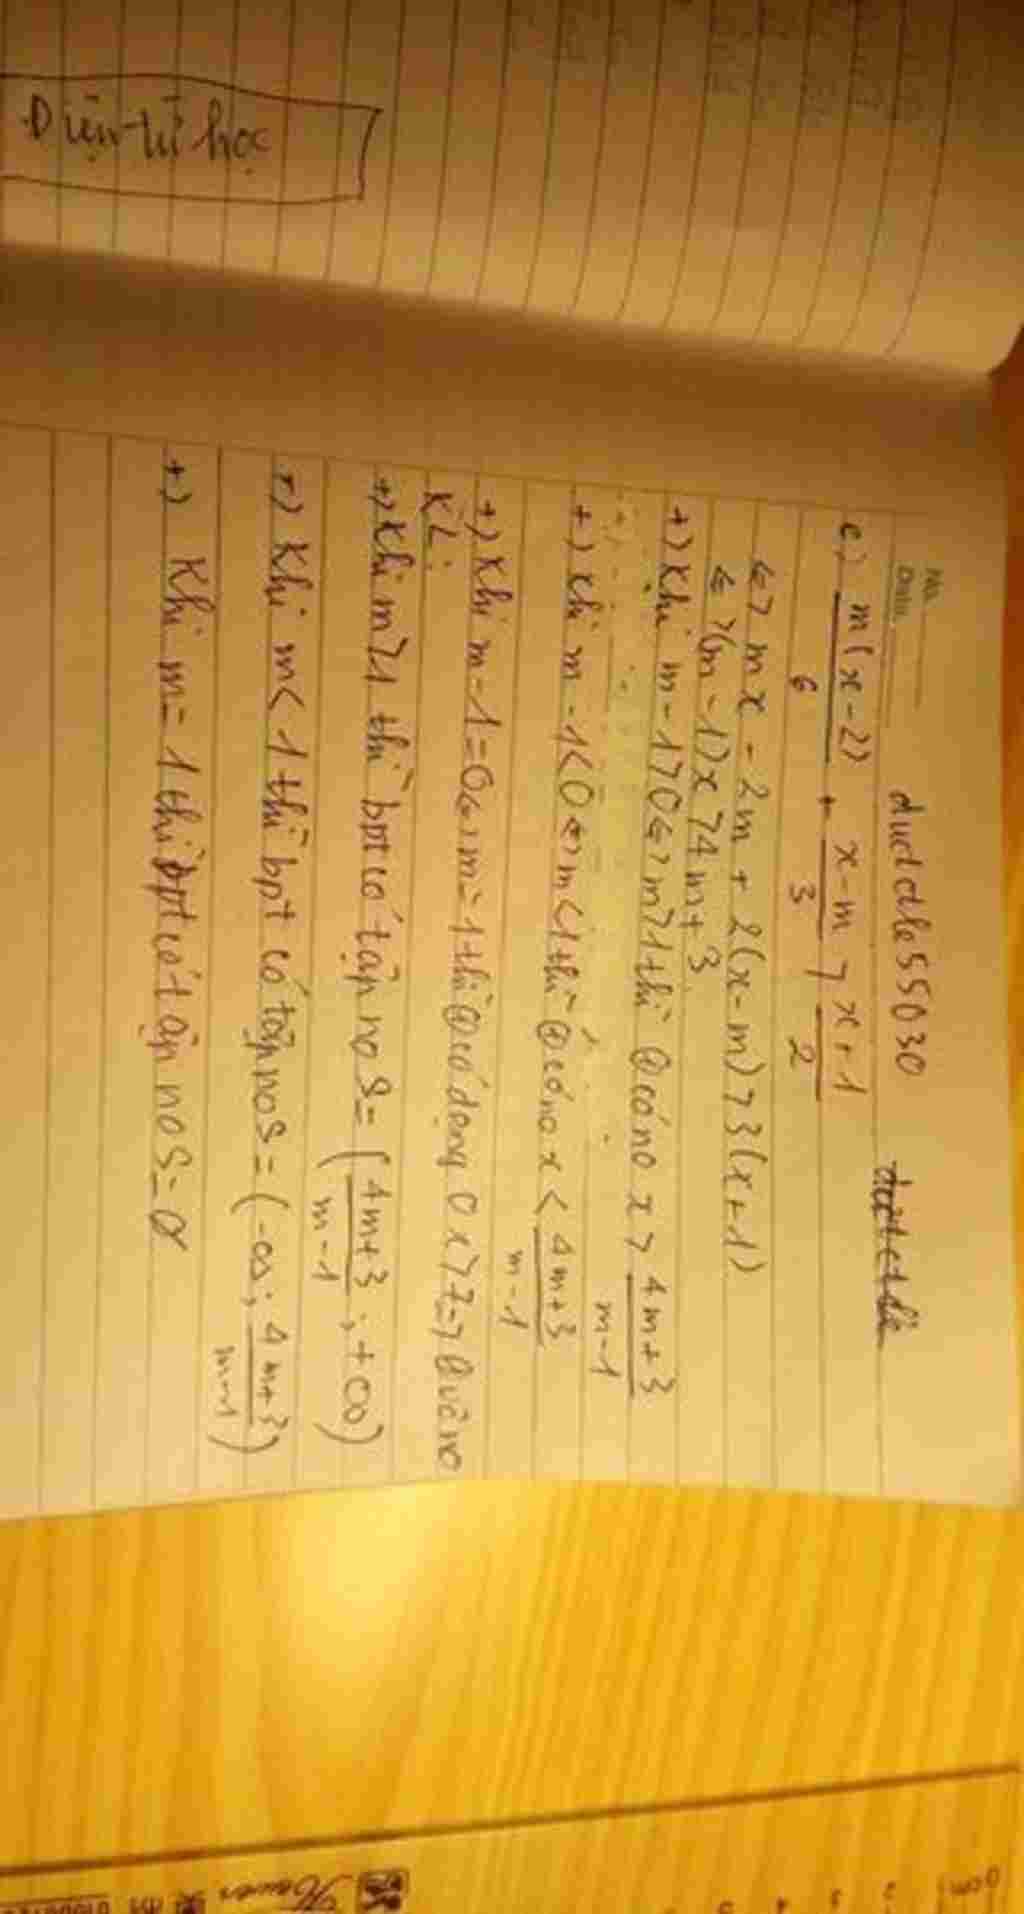 Điện từ học
No.
Date
ductdle55030
c) m(x-2)/6 + x-m/3 > x+1/2
<=> mx - 2m + 2(x-m) > 3(x+1)
<=> (m-1)x > 4m+3
+) Khi m-1>0 <=> m>1 thì @ có no x > 4m+3/m-1
+) Khi m-1<0 <=> m<1 thì @ có no x < 4m+3/m-1
+) Khi m-1=0 <=> m=1 thì @ có dạng 0x>7 => @ vô no
KL:
+) Khi m>1 thì bpt có tập no S = (4m+3/m-1; +∞)
+) Khi m<1 thì bpt có tập no S = (-∞; 4m+3/m-1)
+) Khi m=1 thì bpt có tập no S=Ø
0cm 1 2 3 4 5